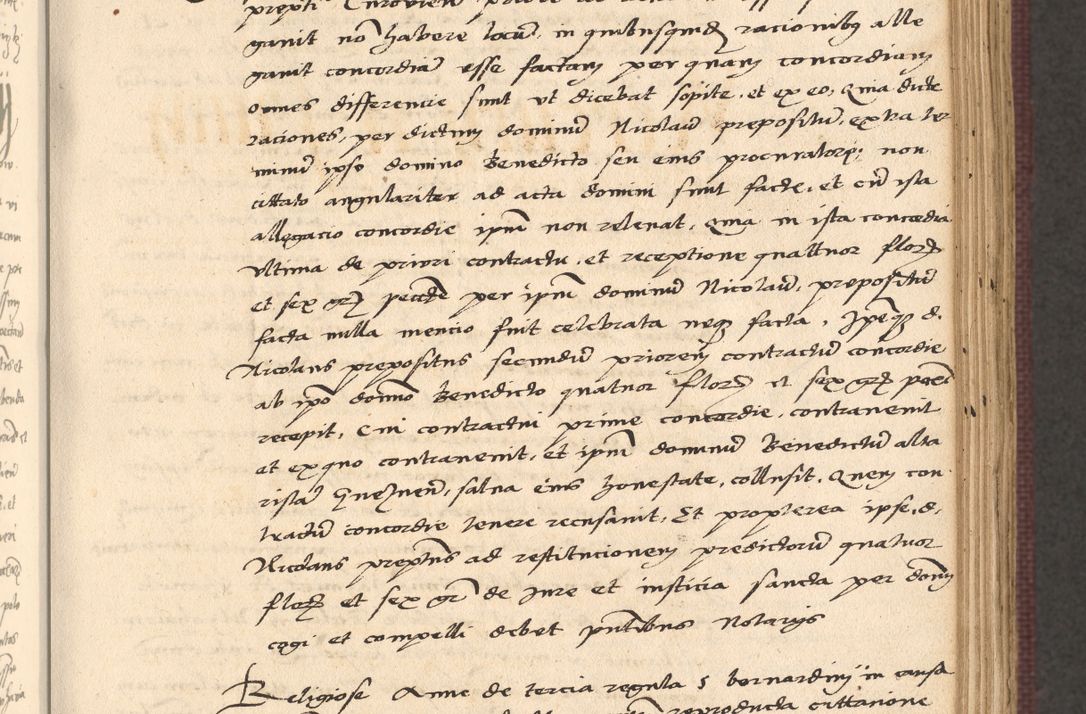 ganit no habere locu, in quibusqmd racionibus alle
gauit concordia esse factam per quam concordiam
omnes differencie sunt vt dicebat sopite, et ex eo, Quia dicte
raciones, per dictum dominu Nicolau prepositu, extra ter
minu ipso domino Benedicto seu eius procuratore, non
cittato angulariter ad acta domini sunt facte, et cu ista
allegacio concordie ipm non releuat, Quia in ista concordia
vltima de priori contractu, et receptione quattuor flor
et sex gr pecte per ipm dominu Nicolau, prepositu
facta nulla mencio fuit celebrata neqz facta, Ipeqz d.
Nicolaus prepositus secundu priorem contractu concordie
ab ipo domno Benedicto quatuor flor et sex gr
recepit, Cui contractui prime concordie, contrauenit
et ex quo contrauenit, et ipm dominu Benedictu alta
rista, salua eius honestate, collusit, Quem con
tractu concordie tenere recusauit, Et propterea ipse, d,
Nicolaus preptus ad restitucionem predictoru quatuor
flor et sex gr de Jure et insticia sancta per domi
cogi et compelli debet pntibus Notarijs
Religiose Anne de tercia regula s bernardinj in causa
reproducta cittacione